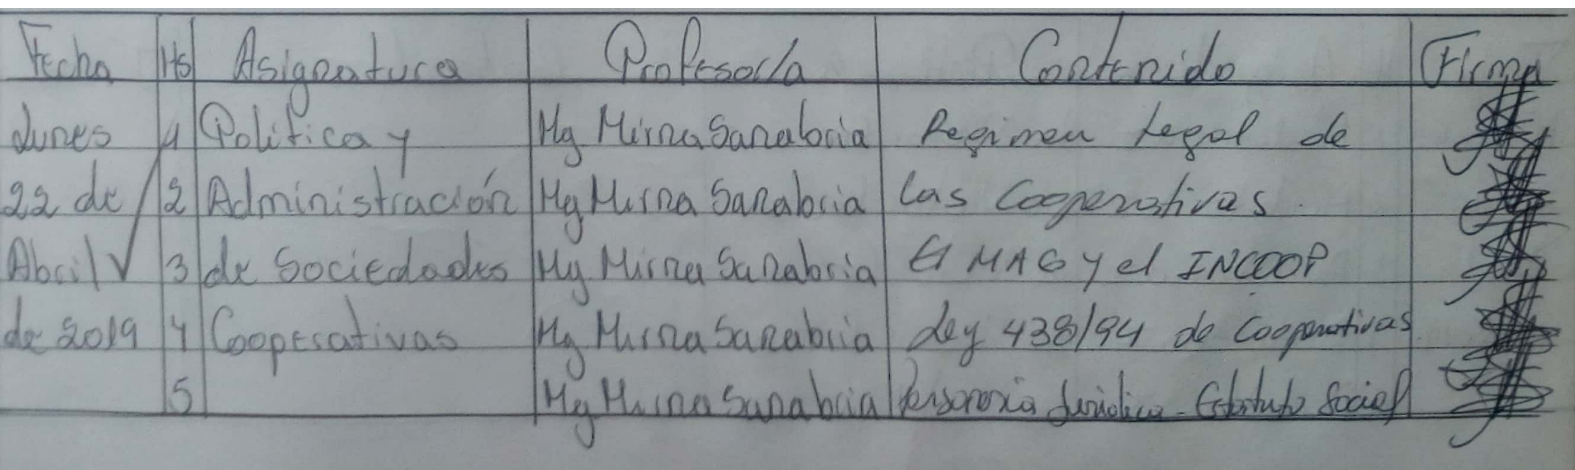 Fecha Hs Asignatura Profesor/a Contenido Firma
Lunes 1 Política y Mg Mirna Sanabria Regimen Legal de
22 de 2 Administración Mg Mirna Sanabria las Cooperativas.
Abril 3 de Sociedades Mg Mirna Sanabria El MAG y el INCOOP
de 2019 4 Cooperativas Mg Mirna Sanabria Ley 438/94 de Cooperativas
5 Mg Mirna Sanabria Personería Jurídica - Estatuto Social